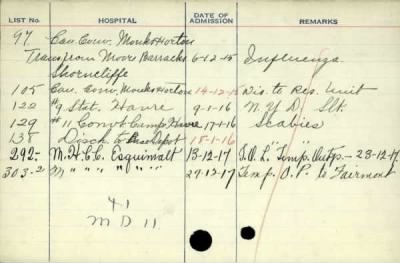 LIST No. HOSPITAL DATE OF ADMISSION REMARKS
97 Can. Conv. Monks Horton
Trans from Moore Barracks 6-12-15 Influenza
Shorncliffe
105 Can. Conv. Monks Horton 14-12-15 Dis. to Res. Unit
122 #9 Stat. Havre 9-1-16 N.Y.D. Slt.
129 #11 Conv. Camp Havre 17-1-16 Scabies
135 Disch to Base Depot 18-1-16
292- M.H.C.C. Esquimalt 13-12-17 "Temp. Outp. - 23-12-17
303-2 M " " " " " 27-12-17 Temp. O.P. to Fairmont
41
M D 11.